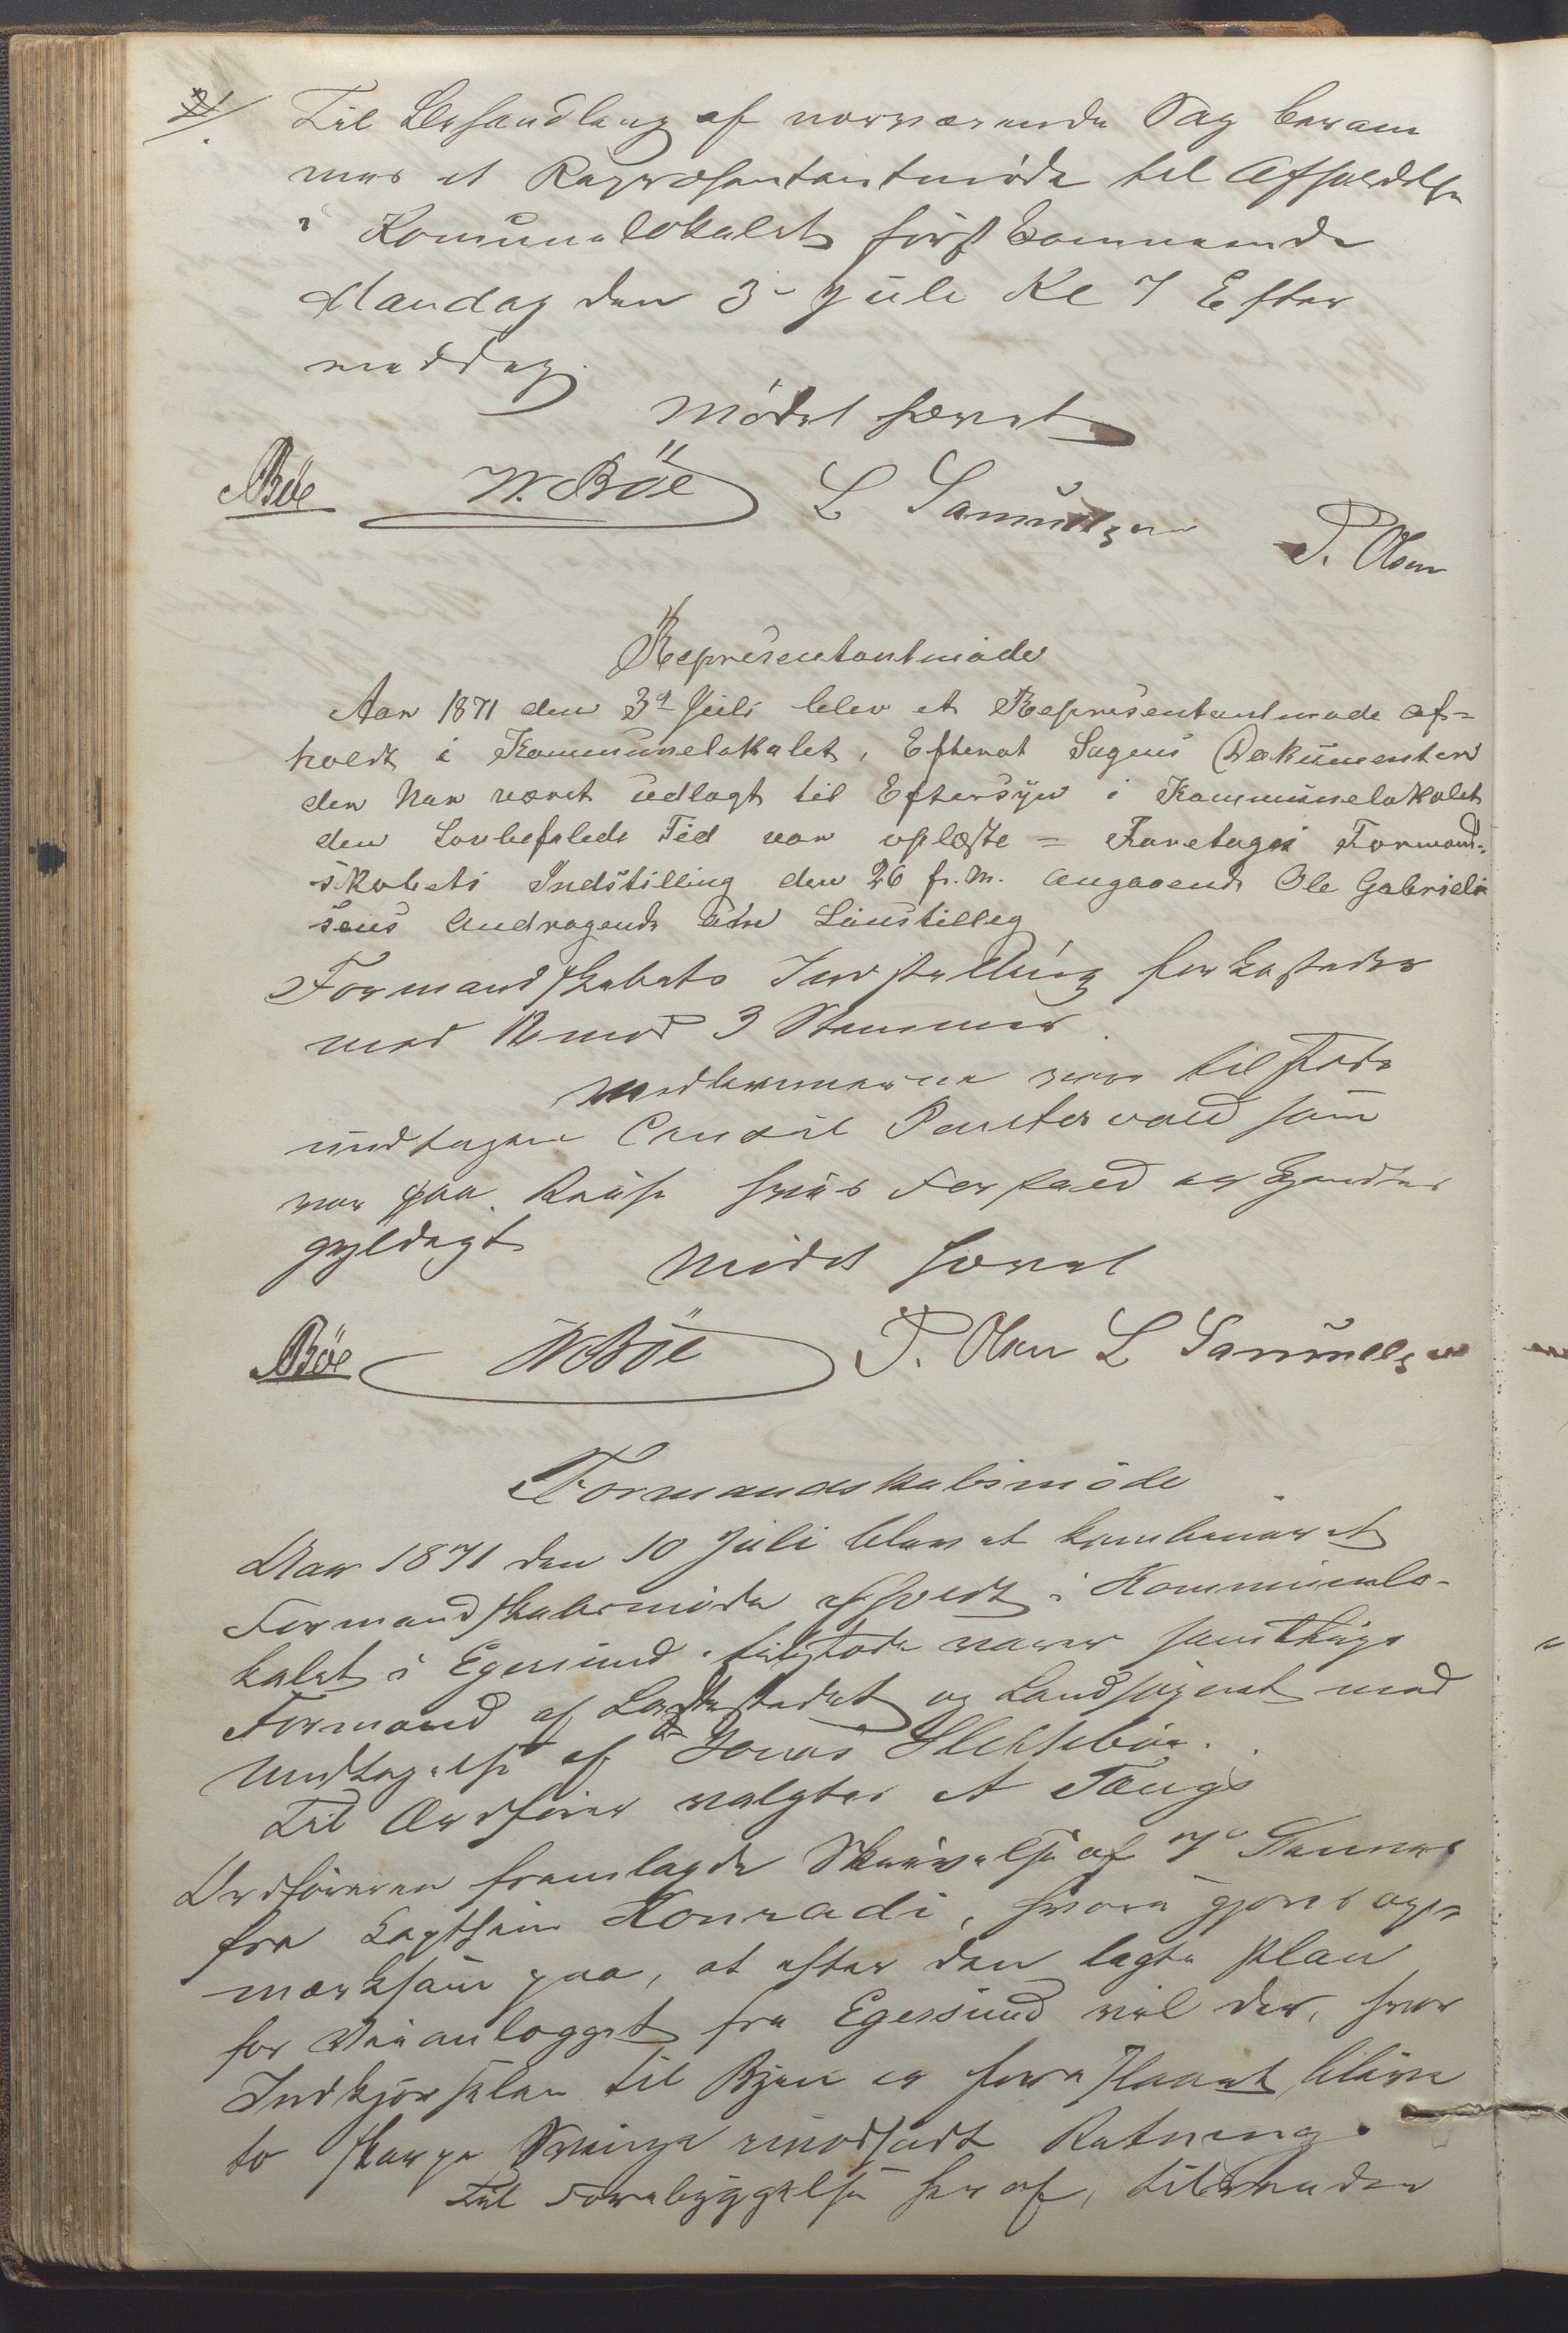 2/. Til Behandling af nærværende Sag beram
mes et Repræsentantmøde til Afholdelse
i Komunelokalet førstkommende
Mandag den 3 Juli Kl 7 Efter
middag.
Mødet hævet
ABöe W. Böe L Samuelsen
P. Olsen
Representantmøde
Aar 1871 den 3d Juli blev et Representantmøde af=
holdt i Kommunelokalet, Efterat Sagens Dokumenter
der har været udlagt til Eftersyn i Kommunelokalet
den Lovbefalede Tid var oplæste = Foretoges Formand=
skabets Indstilling den 26 f. M. angaaende Ole Gabriel
sens Andragende om Lønstillæg
Formandskabets Indstilling forkastedes
med 12 mod 3 Stemmer.
Medlemmerne vare tilstede
undtagen Consul Puntervold som
var paa Reise hvis Forfald er kjendtes
gyldigt
Mødet hævet
ABöe W Böe P. Olsen L Samuelsen
Formandskabsmöde
Aar 1871 den 10 Juli blev et kombineret
Formandskabsmöde afholdt i Kommunelo-
kalet i Egersund. tilstede varer samtlige
Formænd af Ladestedet og Landsognet med
Undtagelse af Jonas Slettebøe.
Til Ordfører valgtes A Tengs
Ordføreren fremlagde Skrivelse af 7de
fra Kaptein Konradi, hvori gjøres opp-
mærksom paa, at efter den lagte Plan
for Veianlægget fra Egersund vil der, hvor
Indkjørselen til Byen er foreslaaet, blive
to skarpe Svinge i modsadt Retning.
Til Forebyggelse heraf, tilraader